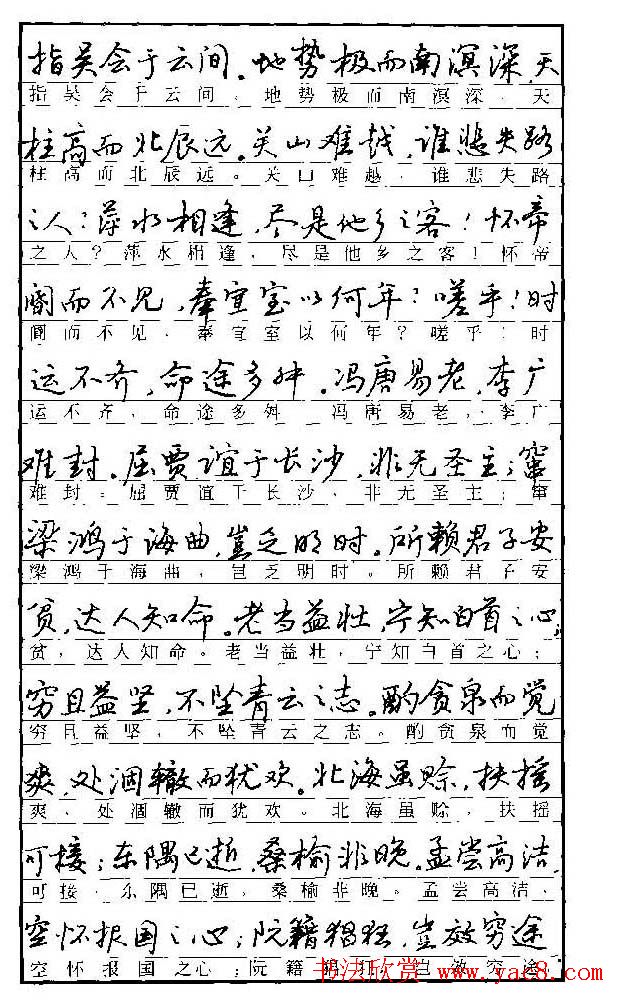 指吴会于云间。地势极而南溟深,天
指吴会于云间。地势极而南溟深,天
柱高而北辰远。关山难越,谁悲失路
柱高而北辰远。关山难越,谁悲失路
之人?萍水相逢,尽是他乡之客!怀帝
之人?萍水相逢,尽是他乡之客!怀帝
阍而不见,奉宣室以何年?嗟乎!时
阍而不见,奉宣室以何年?嗟乎!时
运不齐,命途多舛。冯唐易老,李广
运不齐,命途多舛。冯唐易老,李广
难封。屈贾谊于长沙,非无圣主;窜
难封。屈贾谊于长沙,非无圣主;窜
梁鸿于海曲,岂乏明时。所赖君子安
梁鸿于海曲,岂乏明时。所赖君子安
贫,达人知命。老当益壮,宁知白首之心;
贫,达人知命。老当益壮,宁知白首之心;
穷且益坚,不坠青云之志。酌贪泉而觉
穷且益坚,不坠青云之志。酌贪泉而觉
爽,处涸辙而犹欢。北海虽赊,扶摇
爽,处涸辙而犹欢。北海虽赊,扶摇
可接;东隅已逝,桑榆非晚。孟尝高洁,
可接,东隅已逝,桑榆非晚。孟尝高洁,
空怀报国之心;阮籍猖狂,岂效穷途
空怀报国之心;阮籍猖狂,岂效穷途
书法欣赏 www.yac8.com